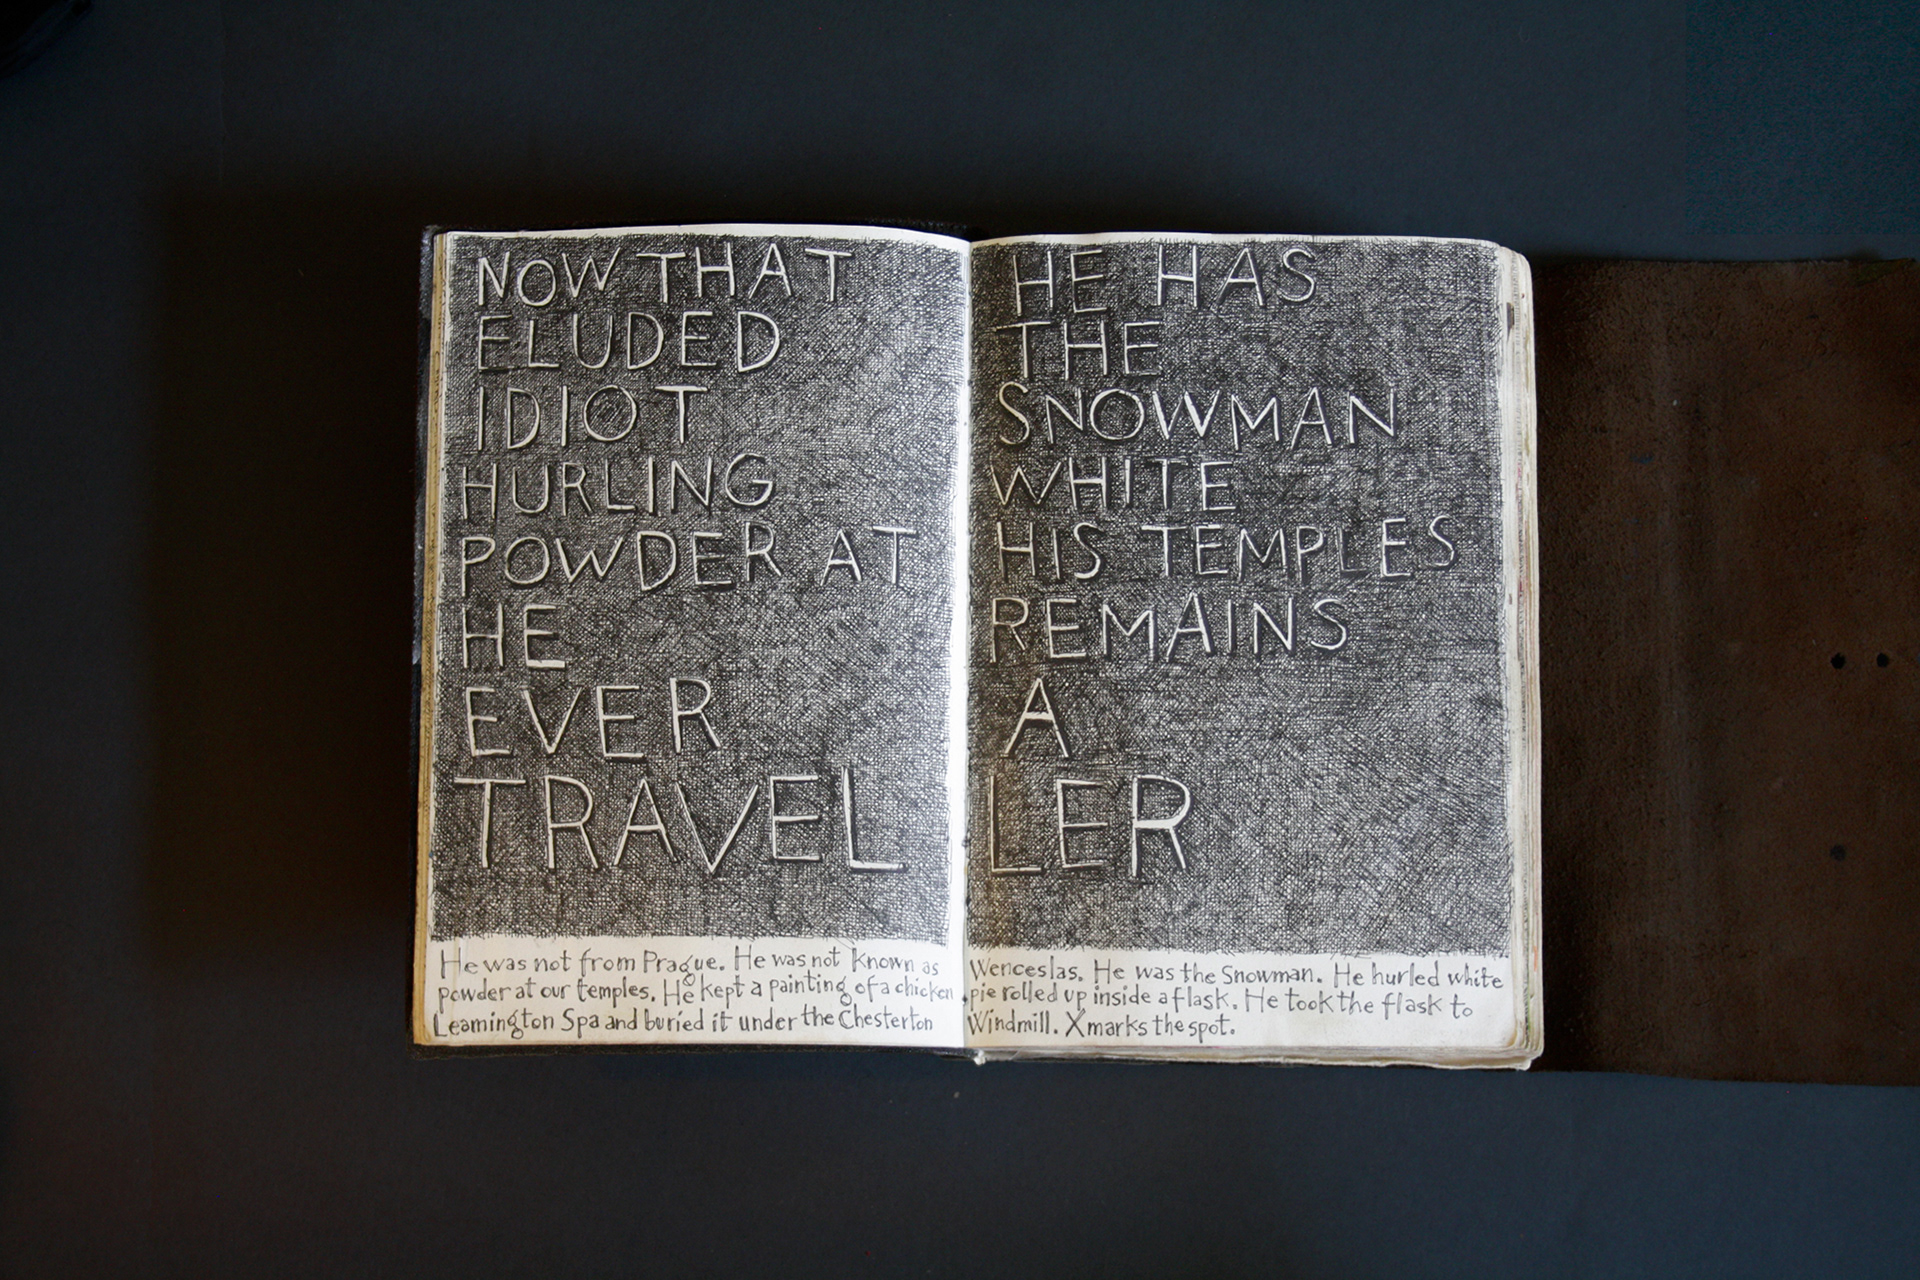 NOW THAT HE HAS
ELUDED THE
IDIOT SNOWMAN
HURLING WHITE
POWDER AT HIS TEMPLES
HE REMAINS
EVER A
TRAVEL LER
He was not from Prague. He was not known as Wenceslas. He was the Snowman. He hurled white
powder at our temples. He kept a painting of a chicken pie rolled up inside a flask. He took the flask to
Leamington Spa and buried it under the Chesterton Windmill. X marks the spot.